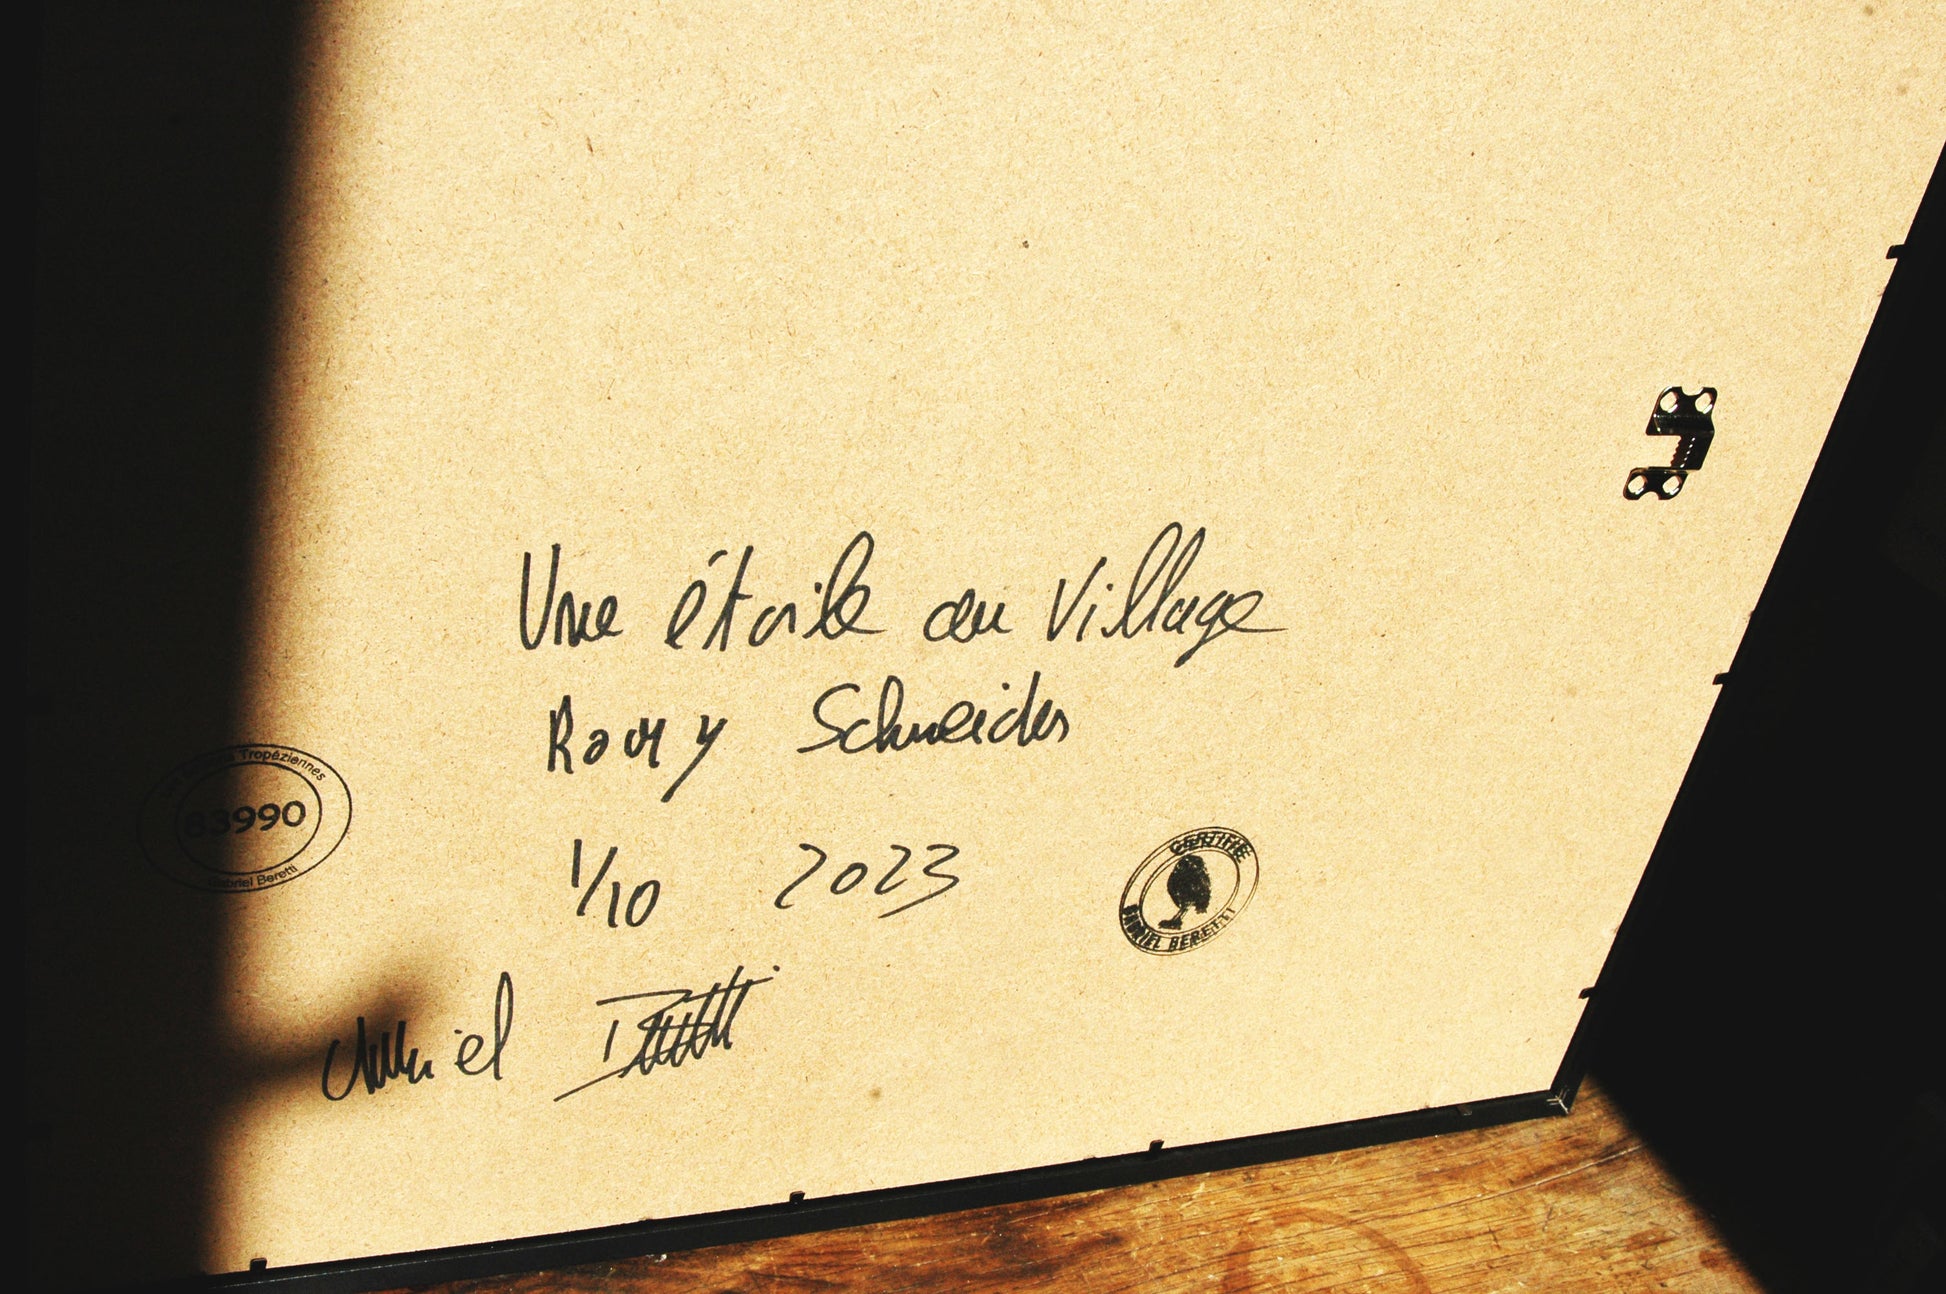 Une étoile au Village
Romy Schneider
1/10 2023
Gabriel Beretti
Tropéziennes
83990
Gabriel Beretti
CERTIFIE
GABRIEL BERETTI